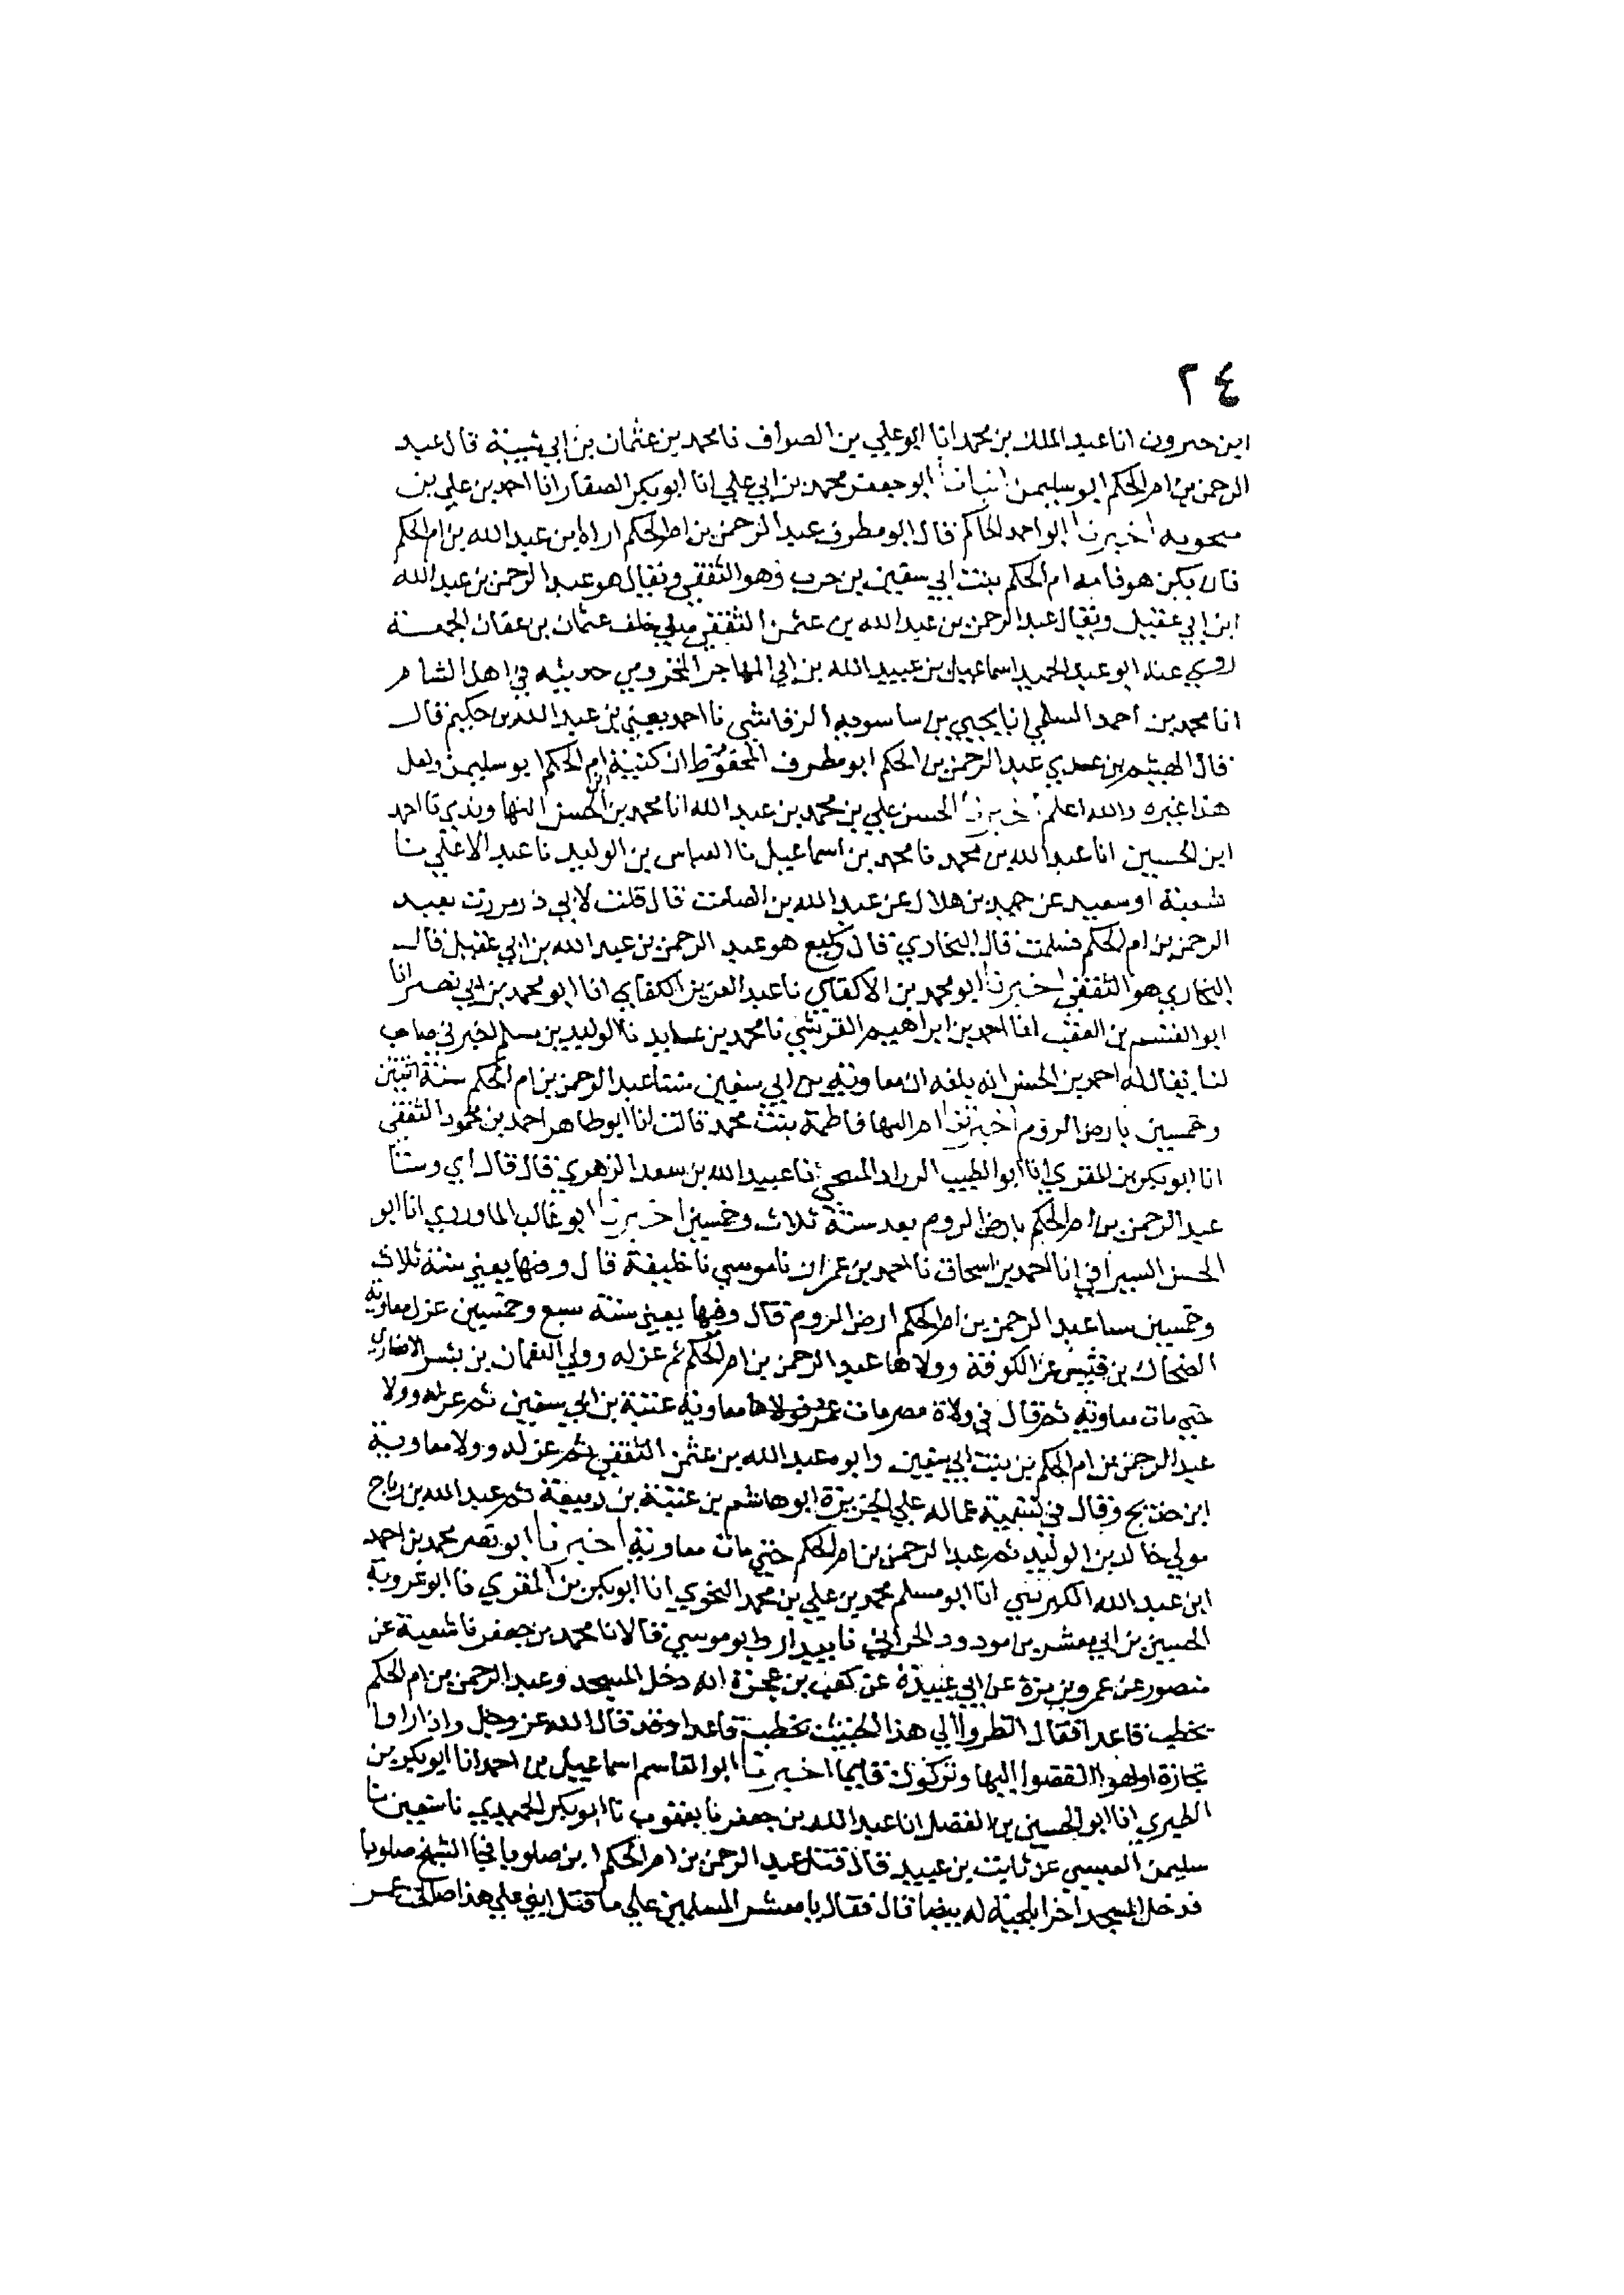 ٢٤
ابن خيرون انا عبد الملك بن محمد انا ابو علي بن الصواف نا محمد بن عثمان بن ابي شيبة قال عبد
الرحمن بن ام الحكم ابو سليمن انبانا ابو جعفر محمد بن ابي علي انا ابو بكر الصفار انا احمد بن علي بن
منجويه اخبرنا ابو احمد الحاكم قال ابو مطرف عبد الرحمن بن ام الحكم اراه ابن عبد الله بن ام الحكم
فان يكن هو فامه ام الحكم بنت ابي سفين بن حرب وهو الثقفي ويقال هو عبد الرحمن بن عبد الله
ابن ابي عقيل ويقال عبد الرحمن بن عبد الله بن عثمن الثقفي صلي خلف عثمان بن عفان الجمعة
روي عنه ابو عبد الحميد اسماعيل بن عبيد الله بن ابي المهاجر المخزومي حديثه في اهل الشام
انا محمد بن احمد السلمي انا يحيي بن ساسويه الرقاشي نا احمد يعني بن عبد الله بن حكيم قال
قال الهيثم بن عدي عبد الرحمن بن الحكم ابو مطرف المحفوظ ان كنية ابن ام الحكم ابو سليمن ولعل
هذا غيره والله اعلم اخبرنا الحسن علي بن محمد بن عبد الله انا محمد بن الحسن النهاوندي نا احمد
ابن الحسين انا عبد الله بن محمد نا محمد بن اسماعيل نا العباس بن الوليد نا عبد الاعلي نا
شعبة او سعيد عن حميد بن هلال عن عبد الله بن الصامت قال قلت لابي ذر مررت بعبد
الرحمن بن ام الحكم فسلمت قال البخاري قال وكيع هو عبد الرحمن بن عبد الله بن ابي عقيل قال
البخاري هو الثقفي اخبرنا ابو محمد بن الاكفاني نا عبد العزيز الكتاني انا ابو محمد بن ابي نصر انا
ابو القسم بن العقب انا احمد بن ابراهيم القرشي نا محمد بن عايد نا الوليد بن مسلم اخبرني صاحب
لنا يقال له احمد بن الحسن انه بلغه ان معاوية بن ابي سفين شتا عبد الرحمن بن ام الحكم سنة اثنتين
وخمسين بارض الروم اخبرتنا ام البها فاطمة بنت محمد قالت انا ابو طاهر احمد بن محمود الثقفي
انا ابو بكر بن المقري انا ابو الطيب الزراد المنبجي نا عبيد الله بن سعد الزهري قال قال ابي وشتا
عبد الرحمن بن ام الحكم بارض الروم بعد سنة ثلاث وخمسين اخبرنا ابو غالب الماوردي انا ابو
الحسن السيرافي انا احمد بن اسحاق نا احمد بن عمران نا موسي نا خليفة قال وفيها يعني سنة ثلاث
وخمسين شتا عبد الرحمن بن ام الحكم ارض الروم قال وفيها يعني سنة سبع وخمسين عزل معاوية
الضحاك بن قيس عن الكوفة وولاها عبد الرحمن بن ام الحكم ثم عزله وولي النعمان بن بشير الانصاري
حتي مات معاوية ثم قال في ولاة مصر مات عمرو فولاها معاوية عتبة بن ابي سفين ثم عزله وولا
عبد الرحمن بن ام الحكم بن بنت ابي سفين وابو عبد الله بن عثمن الثقفي ثم عزله وولا معاوية
ابن حديج وقال في تسمية عماله علي الجزيرة ابو هاشم بن عتبة بن ربيعة ثم عبد الله بن رباح
مولي خالد بن الوليد ثم عبد الرحمن بن ام الحكم حتي مات معاوية اخبرنا ابو نصر محمد بن احمد
ابن عبد الله الكبريتي انا ابو مسلم محمد بن علي بن محمد النحوي انا ابو بكر بن المقري نا ابو عروبة
الحسين بن ابي معشر بن مودود الحراني نا بندار وابو موسي قالا نا محمد بن جعفر نا شعبة عن
منصور عن عمرو بن مرة عن ابي عبيدة عن كعب بن عجرة انه دخل المسجد وعبد الرحمن بن ام الحكم
يخطب قاعدا فقال انظروا الي هذا الخبيث يخطب قاعدا وقد قال الله عز وجل واذا راوا
تجارة او لهوا انفضوا اليها وتركوك قايما اخبرنا ابو القاسم اسماعيل بن احمد انا ابو بكر بن
الطبري انا ابو الحسين بن الفضل انا عبد الله بن جعفر نا يعقوب نا ابو بكر الحميدي نا سفين نا
سليمن العبسي عن ثابت بن عبيد قال قتل عبد الرحمن بن ام الحكم ابن صلوبا فجا الشيخ صلوبا
فدخل المسجد اخذا بلحية له بيضا قال فقال يا معشر المسلمين علي ما قتل ابني علي هذا صالحت عمر